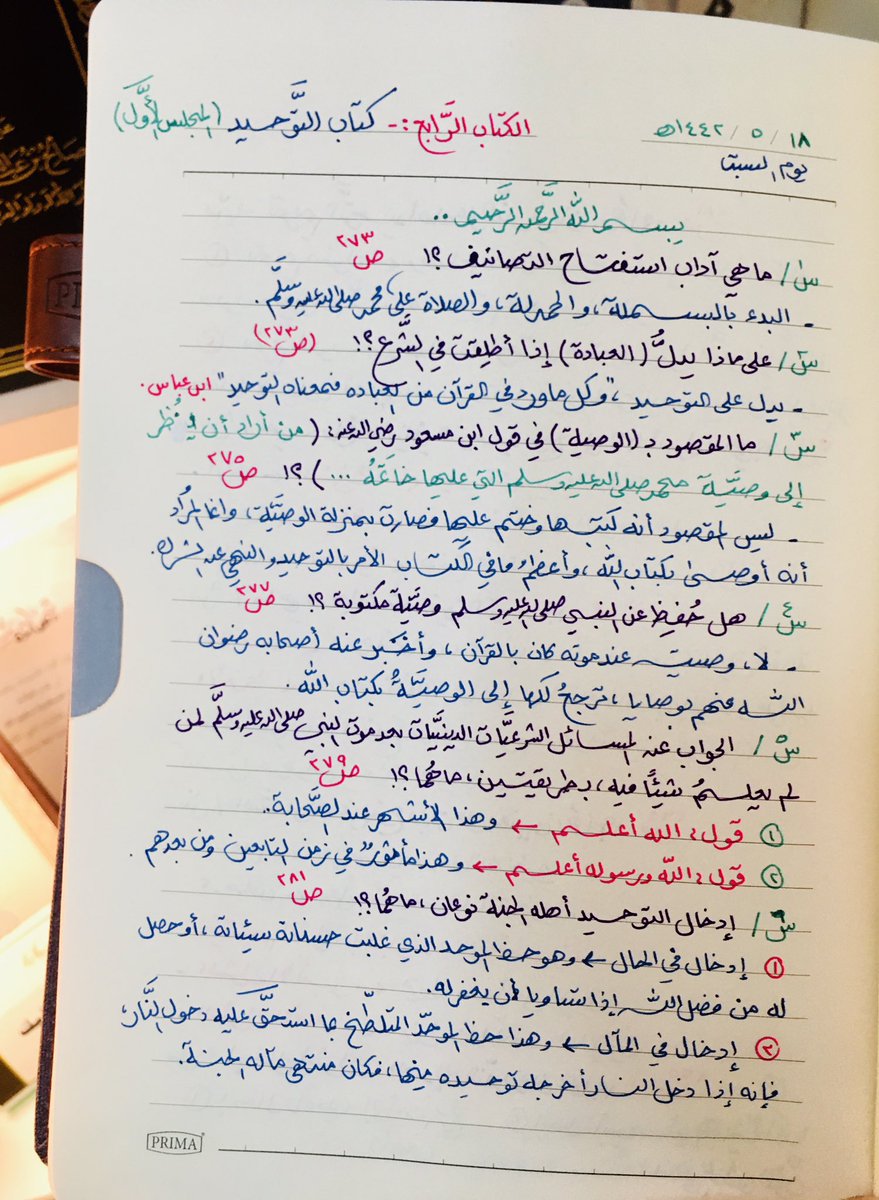 ١٨ / ٥ / ١٤٤٢هـ الكتاب الرَّابع :- كتاب التَّوحيد (المجلس الأوَّل)
يوم السبت
بسم الله الرَّحمن الرَّحيم ..
س١/ ما هي آداب استفتاح التصانيف ؟! ص ٢٧٣
- البدء بالبسملة، والحمدلة، والصلاة على محمد صلى الله عليه وسلَّم .
س٢/ على ماذا يدلُّ (العبادة) إذا أُطلِقت في الشَّرع ؟! (ص ٢٧٣)
- يدل على التوحيد ، "وكل ما ورد في القرآن من العباده فمعناه التوحيد" ابن عباس .
س٣/ ما المقصود بـ (الوصية) في قول ابن مسعود رضي الله عنه : (من أراد أن يَنْظُر
إلى وصيَّة محمد صلى الله عليه وسلم التي عليها خاتمهُ ...) ؟! ص ٢٧٥
- ليس المقصود أنه كتبها وختم عليها فصارت بمنزلة الوصيَّة، وانما المرُاد
أنه أوصى بكتاب الله ، وأعظمُ ما في الكتاب الأمر بالتوحيد والنهي عن الشرك .
س٤/ هل حُفِظ عن النبي صلى الله عليه وسلم وصيَّة مكتوبة ؟! ص ٢٧٧
- لا، وصيته عند موته كان بالقرآن ، وأخبر عنه أصحابه رضوان
الله عنهم بوصايا ، ترجعُ كلها إلى الوصيَّةُ بكتاب الله .
س٥/ الجواب عن المسائل الشرعيَّات الدينيَّات بعد موت النبي صلى الله عليه وسلَّم لمن
لم يعلمُ شيئًا فيه ، بطريقتين ، ما هُما ؟! ص ٢٧٩
① قول : الله أعلم ← وهذا الأشهر عند الصَّحابة .
② قول : الله ورسوله أعلم ← وهذا مأثورٌ في زمن التابعين ومن بعدهم .
س٦/ إدخال التوحيد أهله الجنة نوعان ، ما هُما ؟! ص ٢٨١
① إدخال في الحال ← وهو حظ الموحد الذي غلبت حسناته سيئاته ، أو حصل
له من فضل الله إذا تساويا بأن يغفر له .
② إدخال في المآل ← وهذا حظ الموحِّد المتلطِّخ بما استحقَّ عليه دخول النَّار ،
فإنه إذا دخل النار أخرجه توحيده منها ، فكان منتهى مآله الجنة .
PRIMA
PRIMA